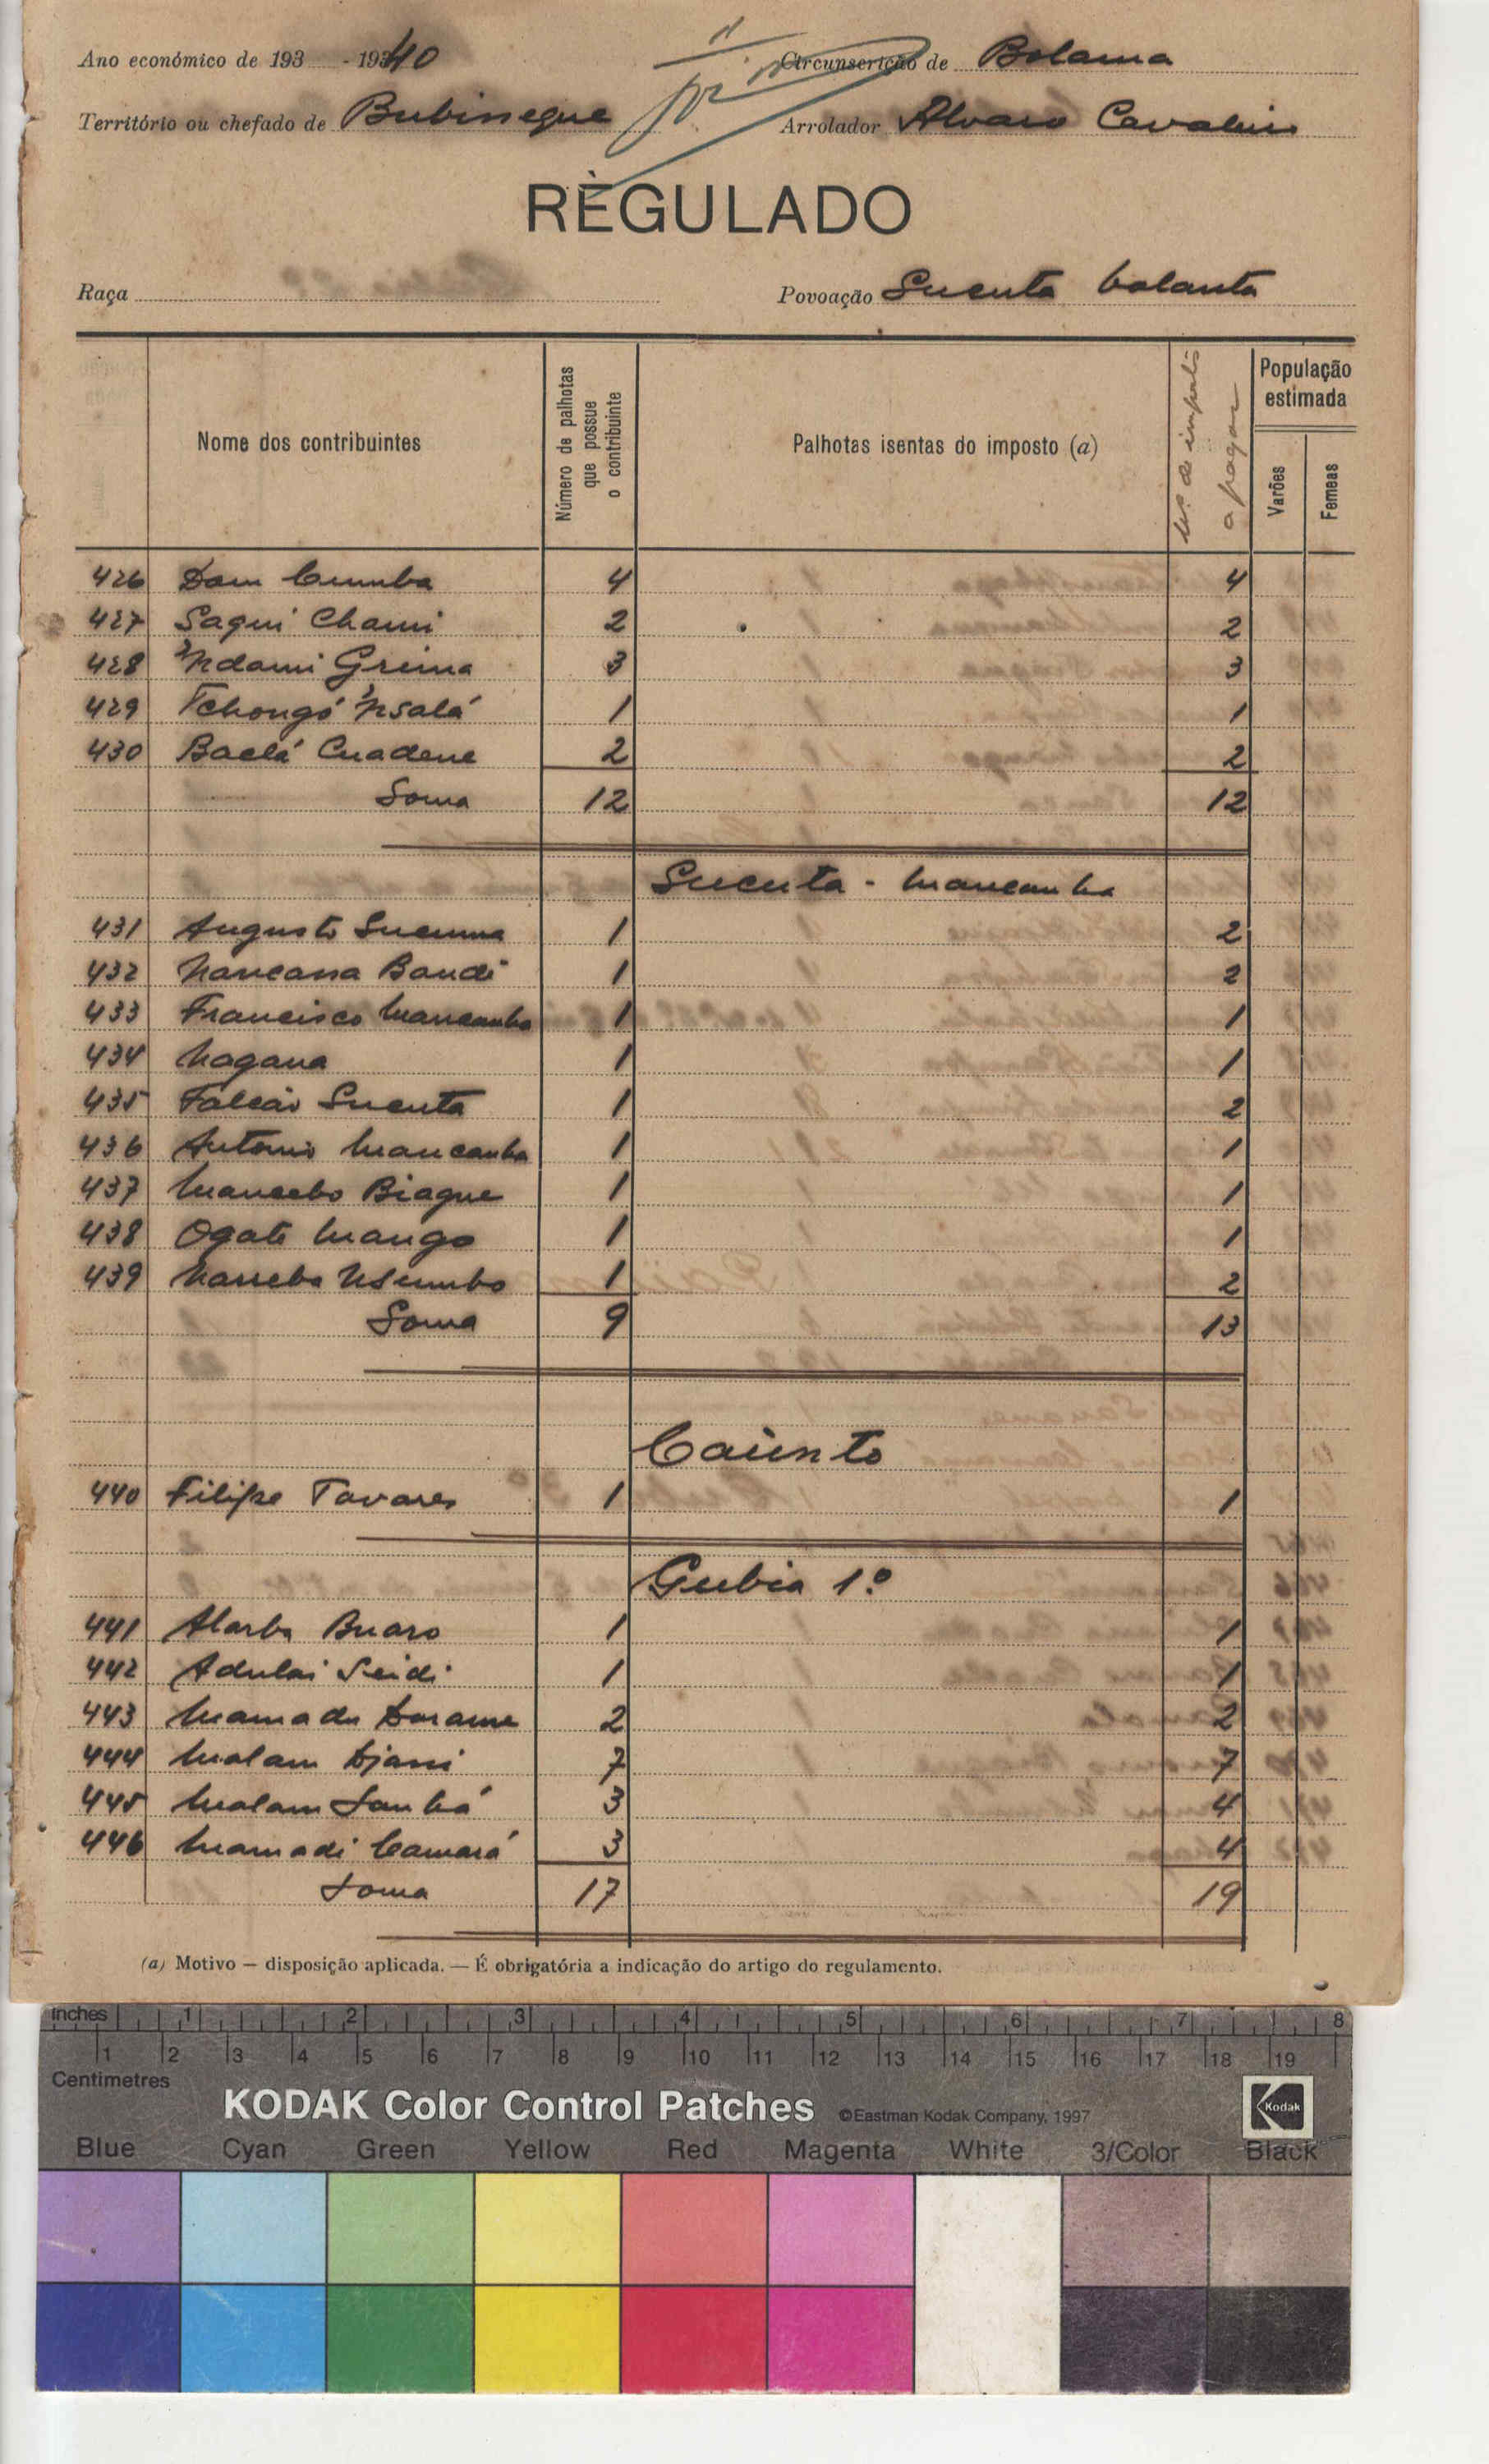 Ano económico de 193 - 1940 Circunscrição de Bolama
Território ou chefado de Bubinseque Arrolador Alvaro
RÈGULADO
Raça Povoação Sucuta balanta
Nome dos contribuintes
Número de palhotas que possue o contribuinte
Palhotas isentas do imposto (a)
de imposto a pagar
População estimada
Varões
Femeas
426 Dam Cumba 4 4
427 Saqui Chami 2 2
428 N'dami Greina 3 3
429 Tchongó N'salá 1 1
430 Baclá Cuadene 2 2
Soma 12 12
Sucuta - mancanha
431 Augusto Sucuma 1 2
432 Nancassa Bandi 1 2
433 Francisco Mancanha 1 1
434 Nagana 1 1
435 Falcão Sucuta 1 2
436 Antonio Mancanha 1 1
437 Mancebo Biague 1 1
438 Ogate Mango 1 1
439 Nanseba Nsumbo 1 2
Soma 9 13
Caiinto
440 Filipe Tavares 1 1
Gubia 1.º
441 Alarba Buaro 1 1
442 Adulai Seidi 1 1
443 Mamadu Darame 2 2
444 Malam Djassi 7 7
445 Malam Sanhá 3 4
446 Mamadi Camará 3 4
Soma 17 19
(a) Motivo — disposição aplicada. — É obrigatória a indicação do artigo do regulamento.
Inches 1 2 3 4 5 6 7 8
1 2 3 4 5 6 7 8 9 10 11 12 13 14 15 16 17 18 19
Centimetres
KODAK Color Control Patches ©Eastman Kodak Company, 1997 Kodak
Blue Cyan Green Yellow Red Magenta White 3/Color Black